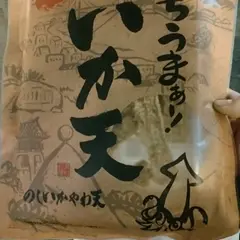 うまぁ!
いか天
のしいかやわ天